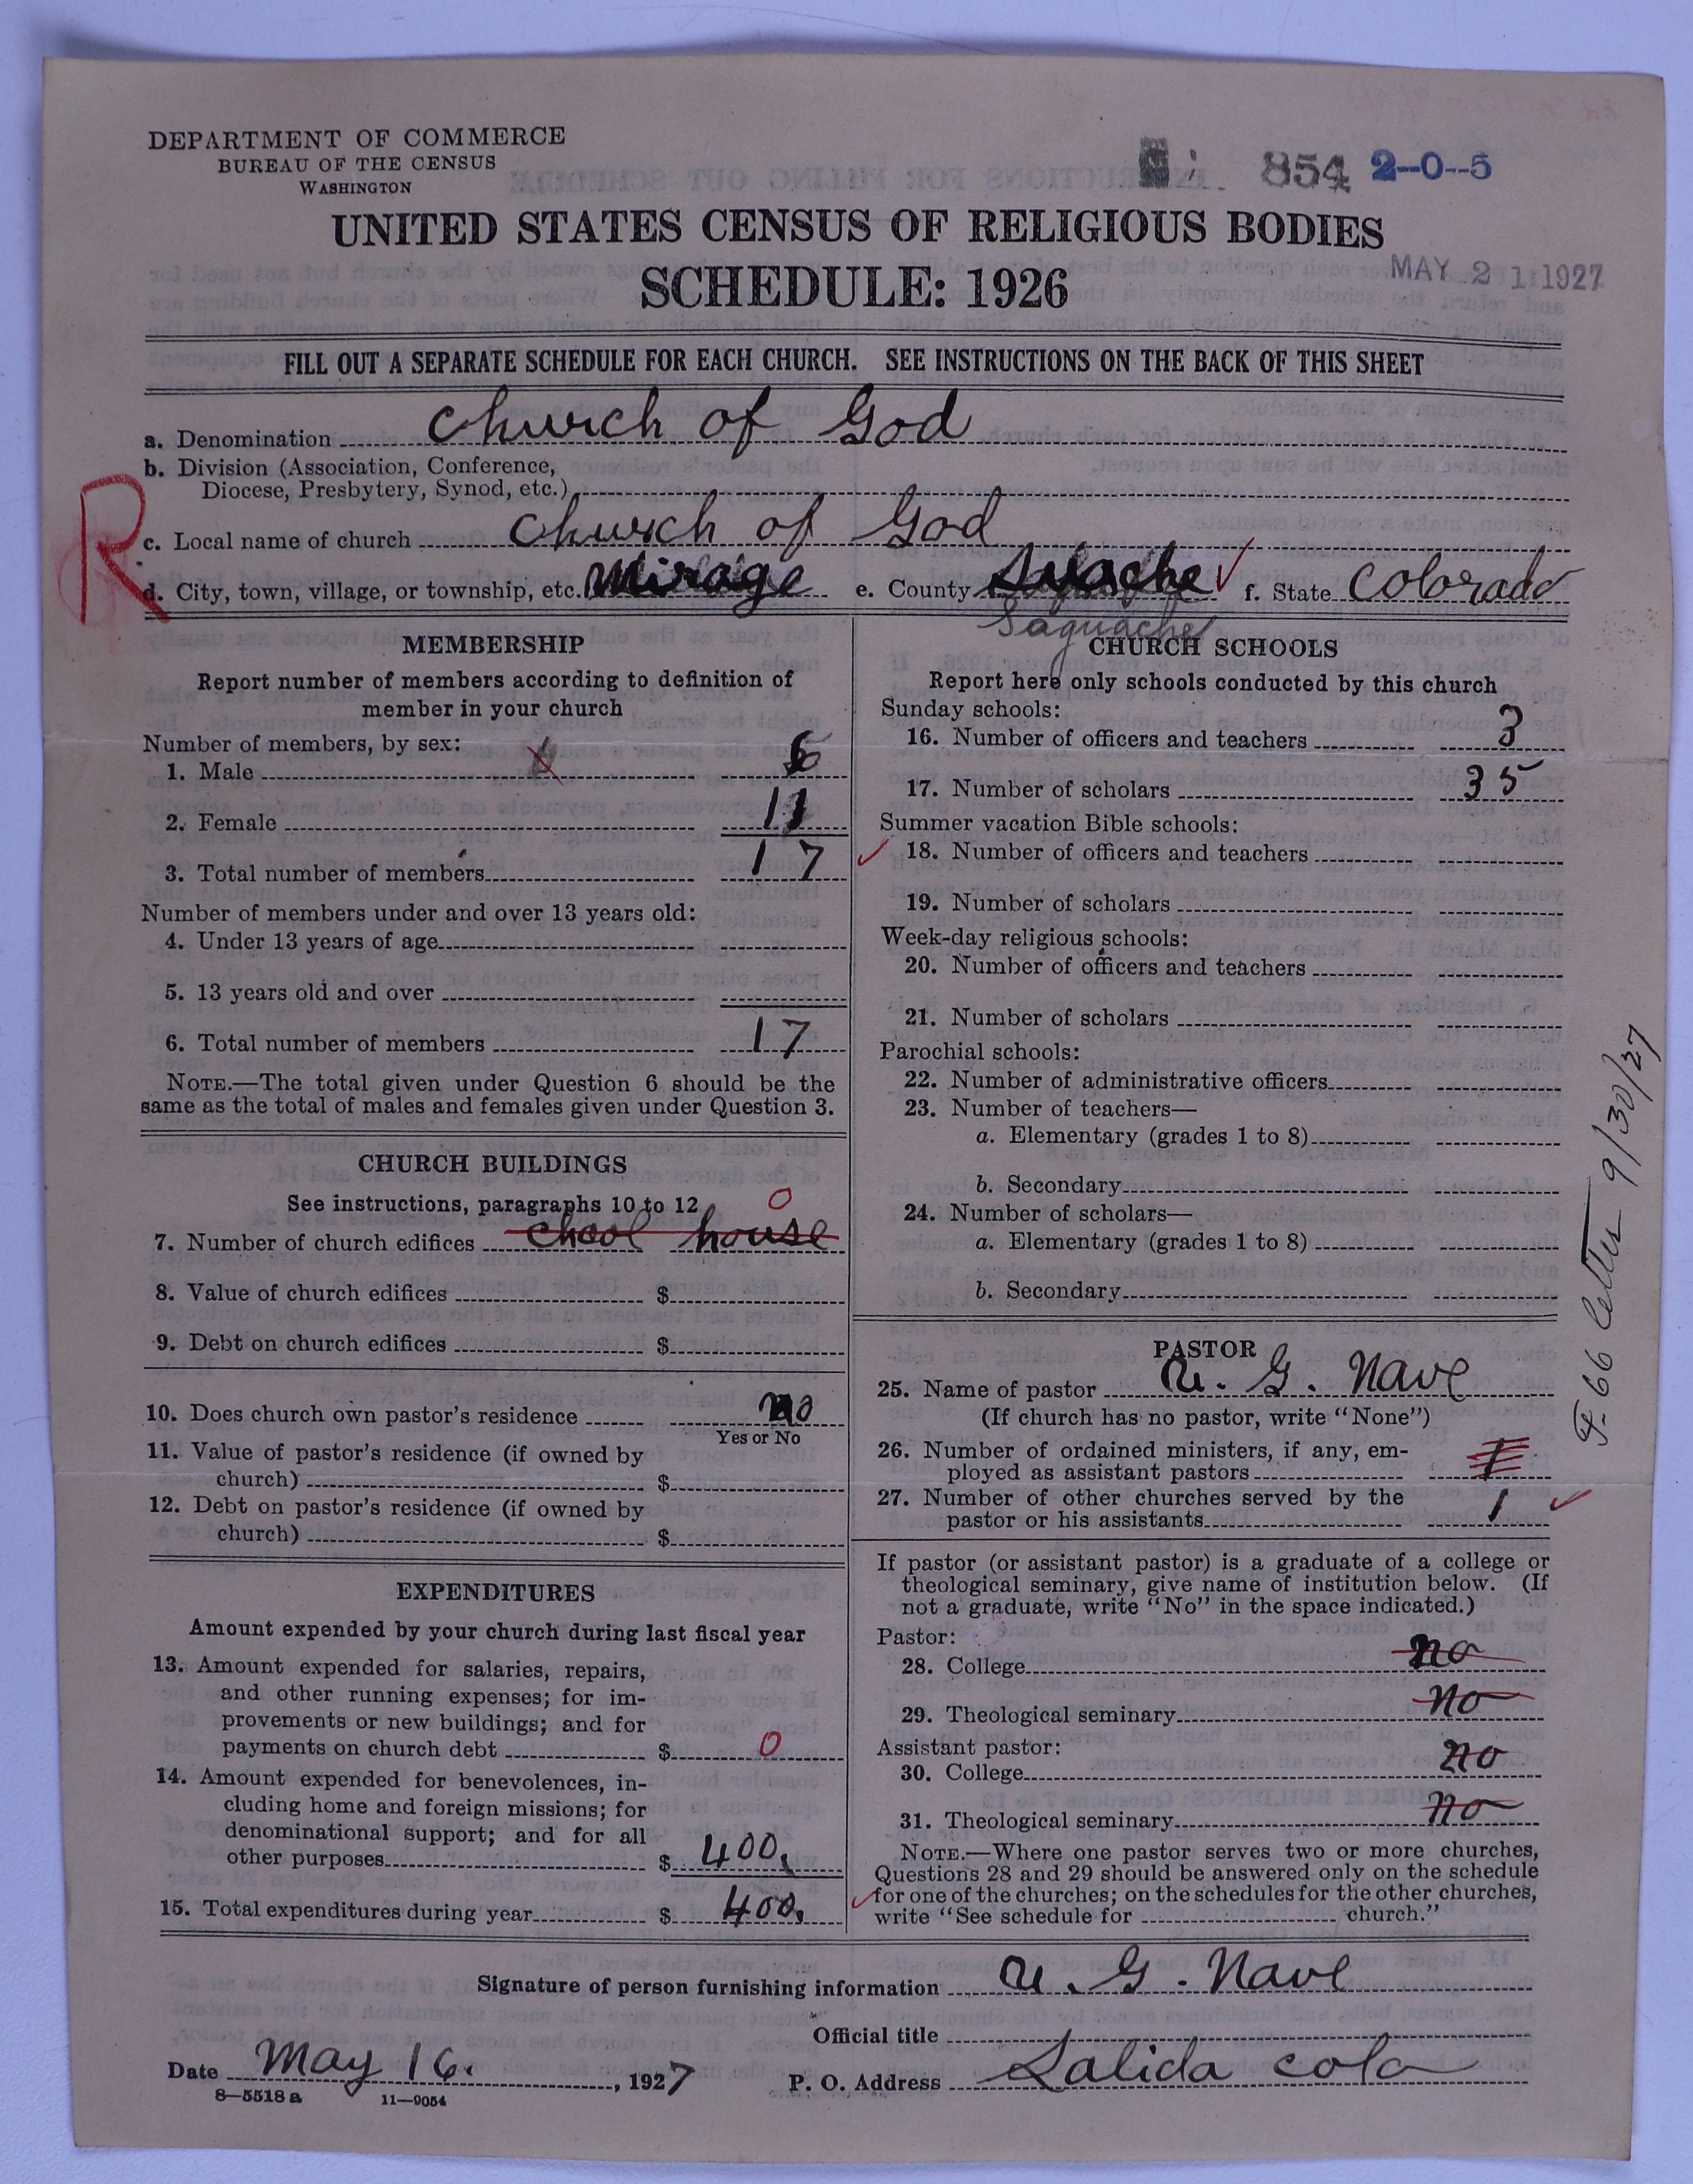 DEPARTMENT OF COMMERCE
BUREAU OF THE CENSUS
WASHINGTON
854 2--0--5
UNITED STATES CENSUS OF RELIGIOUS BODIES
SCHEDULE: 1926
MAY 21 1927
FILL OUT A SEPARATE SCHEDULE FOR EACH CHURCH. SEE INSTRUCTIONS ON THE BACK OF THIS SHEET
a. Denomination Church of God
b. Division (Association, Conference,
Diocese, Presbytery, Synod, etc.)
R
c. Local name of church Church of God
d. City, town, village, or township, etc. Mirage e. County f. State Colorado
Saguache
MEMBERSHIP
Report number of members according to definition of
member in your church
Number of members, by sex:
1. Male 6
2. Female 11
3. Total number of members 17
Number of members under and over 13 years old:
4. Under 13 years of age
5. 13 years old and over
6. Total number of members 17
NOTE.—The total given under Question 6 should be the
same as the total of males and females given under Question 3.
CHURCH BUILDINGS
See instructions, paragraphs 10 to 12
0
7. Number of church edifices chool house
8. Value of church edifices $
9. Debt on church edifices $
10. Does church own pastor's residence no
Yes or No
11. Value of pastor's residence (if owned by
church) $
12. Debt on pastor's residence (if owned by
church) $
EXPENDITURES
Amount expended by your church during last fiscal year
13. Amount expended for salaries, repairs,
and other running expenses; for im-
provements or new buildings; and for
payments on church debt $ 0
14. Amount expended for benevolences, in-
cluding home and foreign missions; for
denominational support; and for all
other purposes $ 400.
15. Total expenditures during year $ 400.
CHURCH SCHOOLS
Report here only schools conducted by this church
Sunday schools:
16. Number of officers and teachers 3
17. Number of scholars 35
Summer vacation Bible schools:
18. Number of officers and teachers
19. Number of scholars
Week-day religious schools:
20. Number of officers and teachers
21. Number of scholars
Parochial schools:
22. Number of administrative officers
23. Number of teachers—
a. Elementary (grades 1 to 8)
b. Secondary
24. Number of scholars—
a. Elementary (grades 1 to 8)
b. Secondary
PASTOR
25. Name of pastor U. G. Nave
(If church has no pastor, write "None")
26. Number of ordained ministers, if any, em-
ployed as assistant pastors 1
27. Number of other churches served by the
pastor or his assistants 1
If pastor (or assistant pastor) is a graduate of a college or
theological seminary, give name of institution below. (If
not a graduate, write "No" in the space indicated.)
Pastor:
28. College no
29. Theological seminary no
Assistant pastor:
30. College no
31. Theological seminary no
NOTE.—Where one pastor serves two or more churches,
Questions 28 and 29 should be answered only on the schedule
for one of the churches; on the schedules for the other churches,
write "See schedule for church."
F-66 letter 9/30/27
Signature of person furnishing information U. G. Nave
Official title
Date May 16., 1927 P. O. Address Salida colo
8—5518a 11—9054